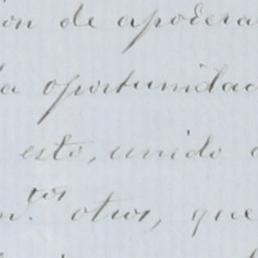 ion de apodera
la oportunidad
esto, unido a
n.tos otros, que